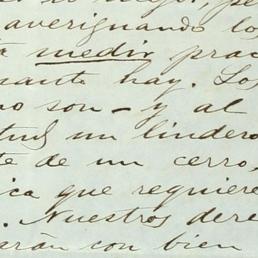 averiguando los
medir, prac
hay. Los
no son – y al
un lindero
te de un cerro,
ica que requiere
. Nuestros dere
arán con bien